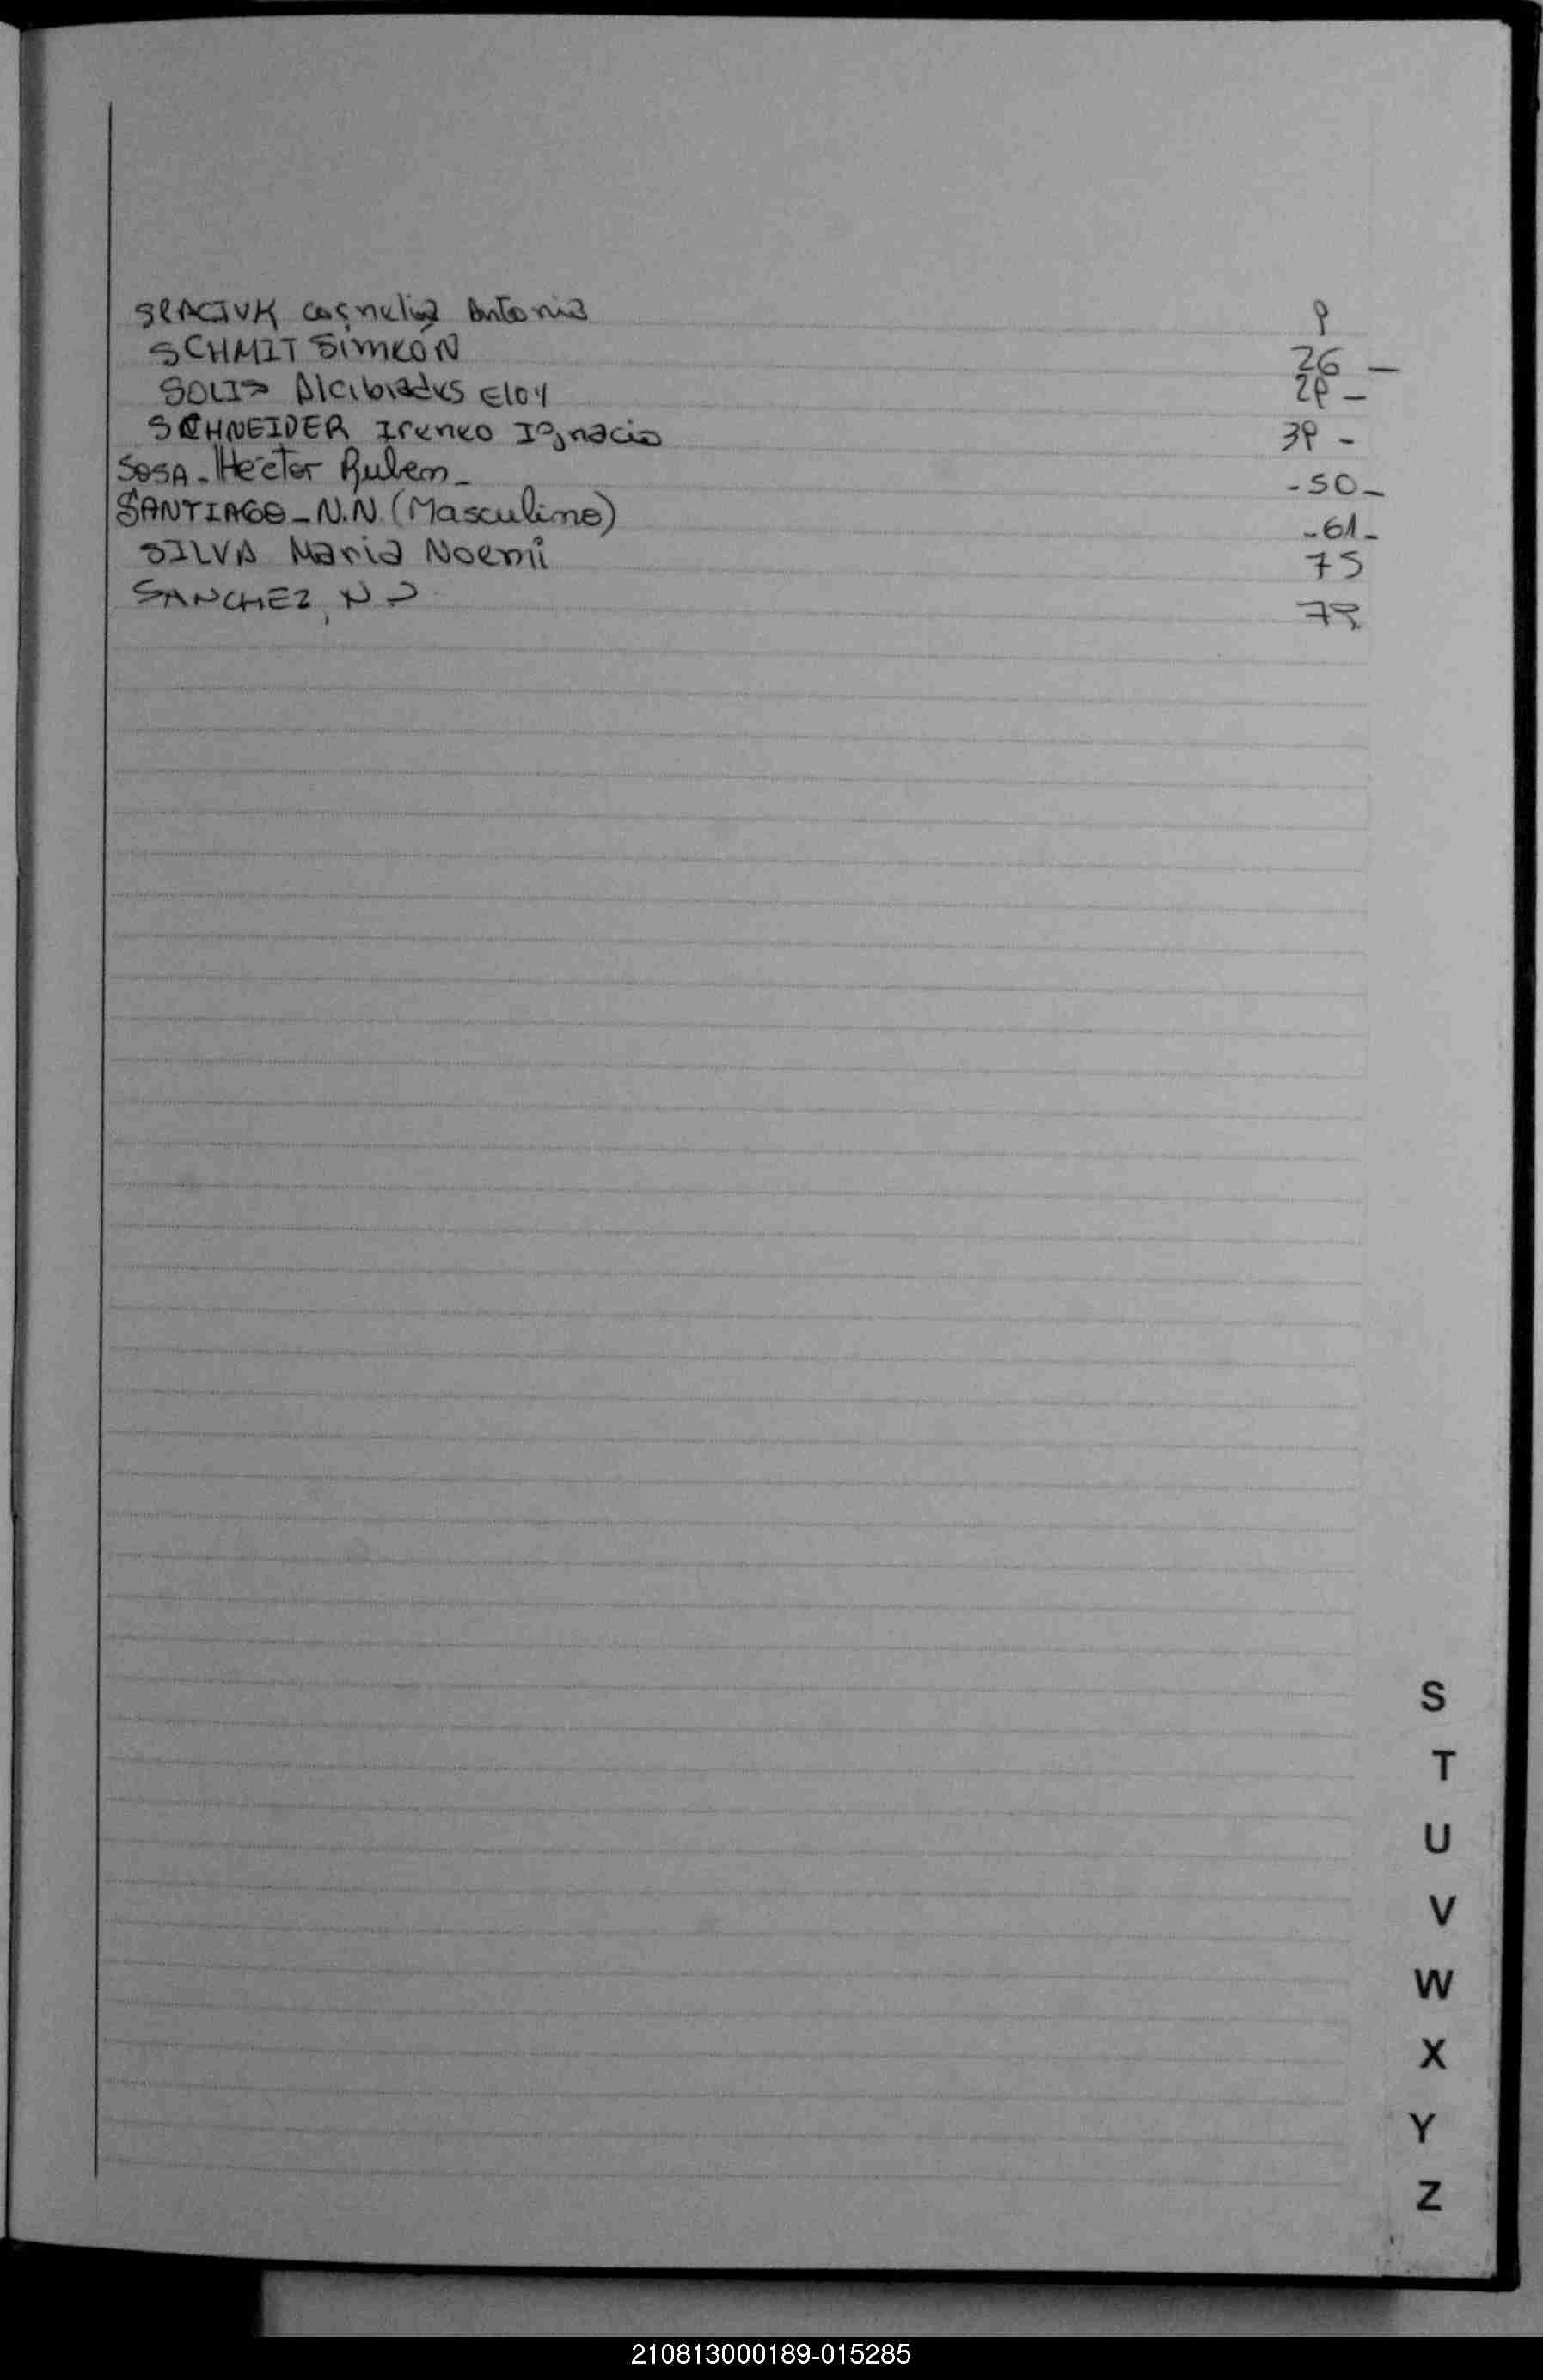 SPACIUK Cornelia Antonia 9
SCHMIT SimEÓN 26 —
SOLIS Alcibiades Eloy 29 —
SCHNEIDER Ireneo Ignacio 39 -
SOSA - Héctor Ruben - - 50 -
SANTIAGO - N.N. (Masculino) - 61 -
SILVA Maria Noemi 75
SANCHEZ, N 79
S
T
U
V
W
X
Y
Z
210813000189-015285